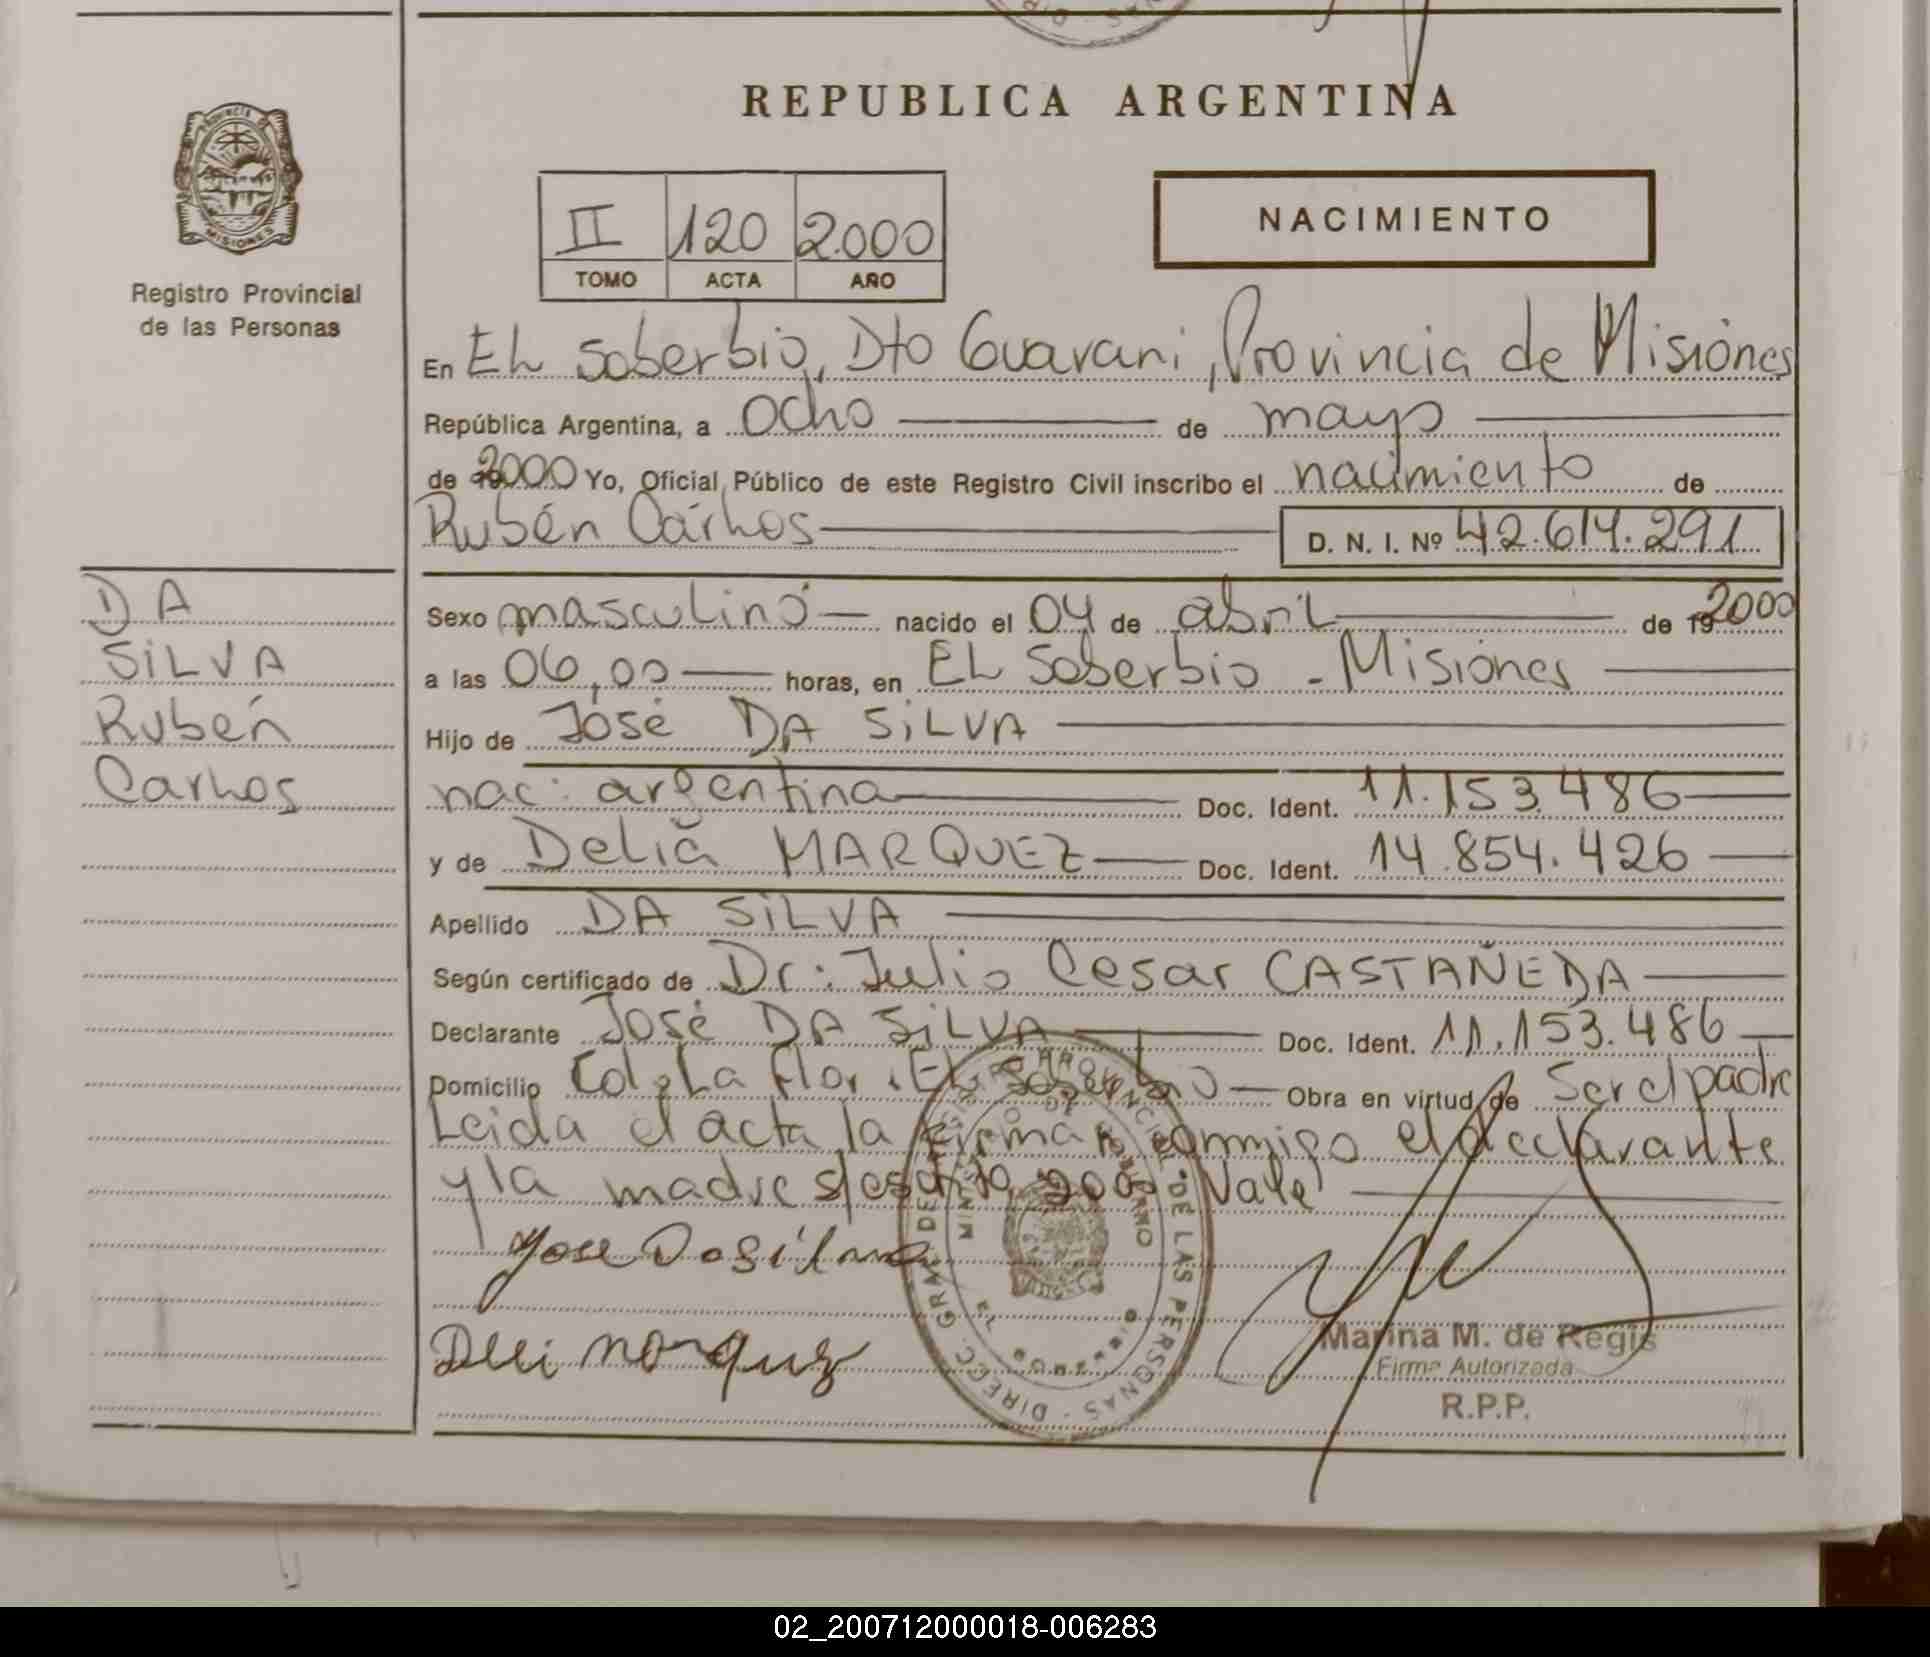 REPUBLICA ARGENTINA
PROVINCIA DE
MISIONES
Registro Provincial
de las Personas
II 120 2.000
TOMO ACTA AÑO
NACIMIENTO
En EL Soberbio, Dto Guarani, Provincia de Misiones
República Argentina, a ocho de mayo
de 2000 Yo, Oficial Público de este Registro Civil inscribo el nacimiento de
Rubén Carlos D. N. I. Nº 42.614.291
DA
SiLVA
Rubén
Carlos
Sexo masculino nacido el 04 de abril de 19 2000
a las 06,00 horas, en EL Soberbio - Misiones
Hijo de José DA SiLVA
nac: argentina Doc. Ident. 11.153.486
y de Delia MARQUEZ Doc. Ident. 14.854.426
Apellido DA SiLVA
Según certificado de Dr: Julio Cesar CASTAÑEDA
Declarante José DA SiLVA Doc. Ident. 11.153.486
Domicilio Col. La Flor. EL Soberbio Obra en virtud de Ser el padre
Leida el acta la firman conmigo el declarante
y la madre s/escrito, 2000 Vale
Jose Da Silva
Marina M. de Regis
Firma Autorizada
R.P.P.
DE LAS PERSONAS
02_200712000018-006283